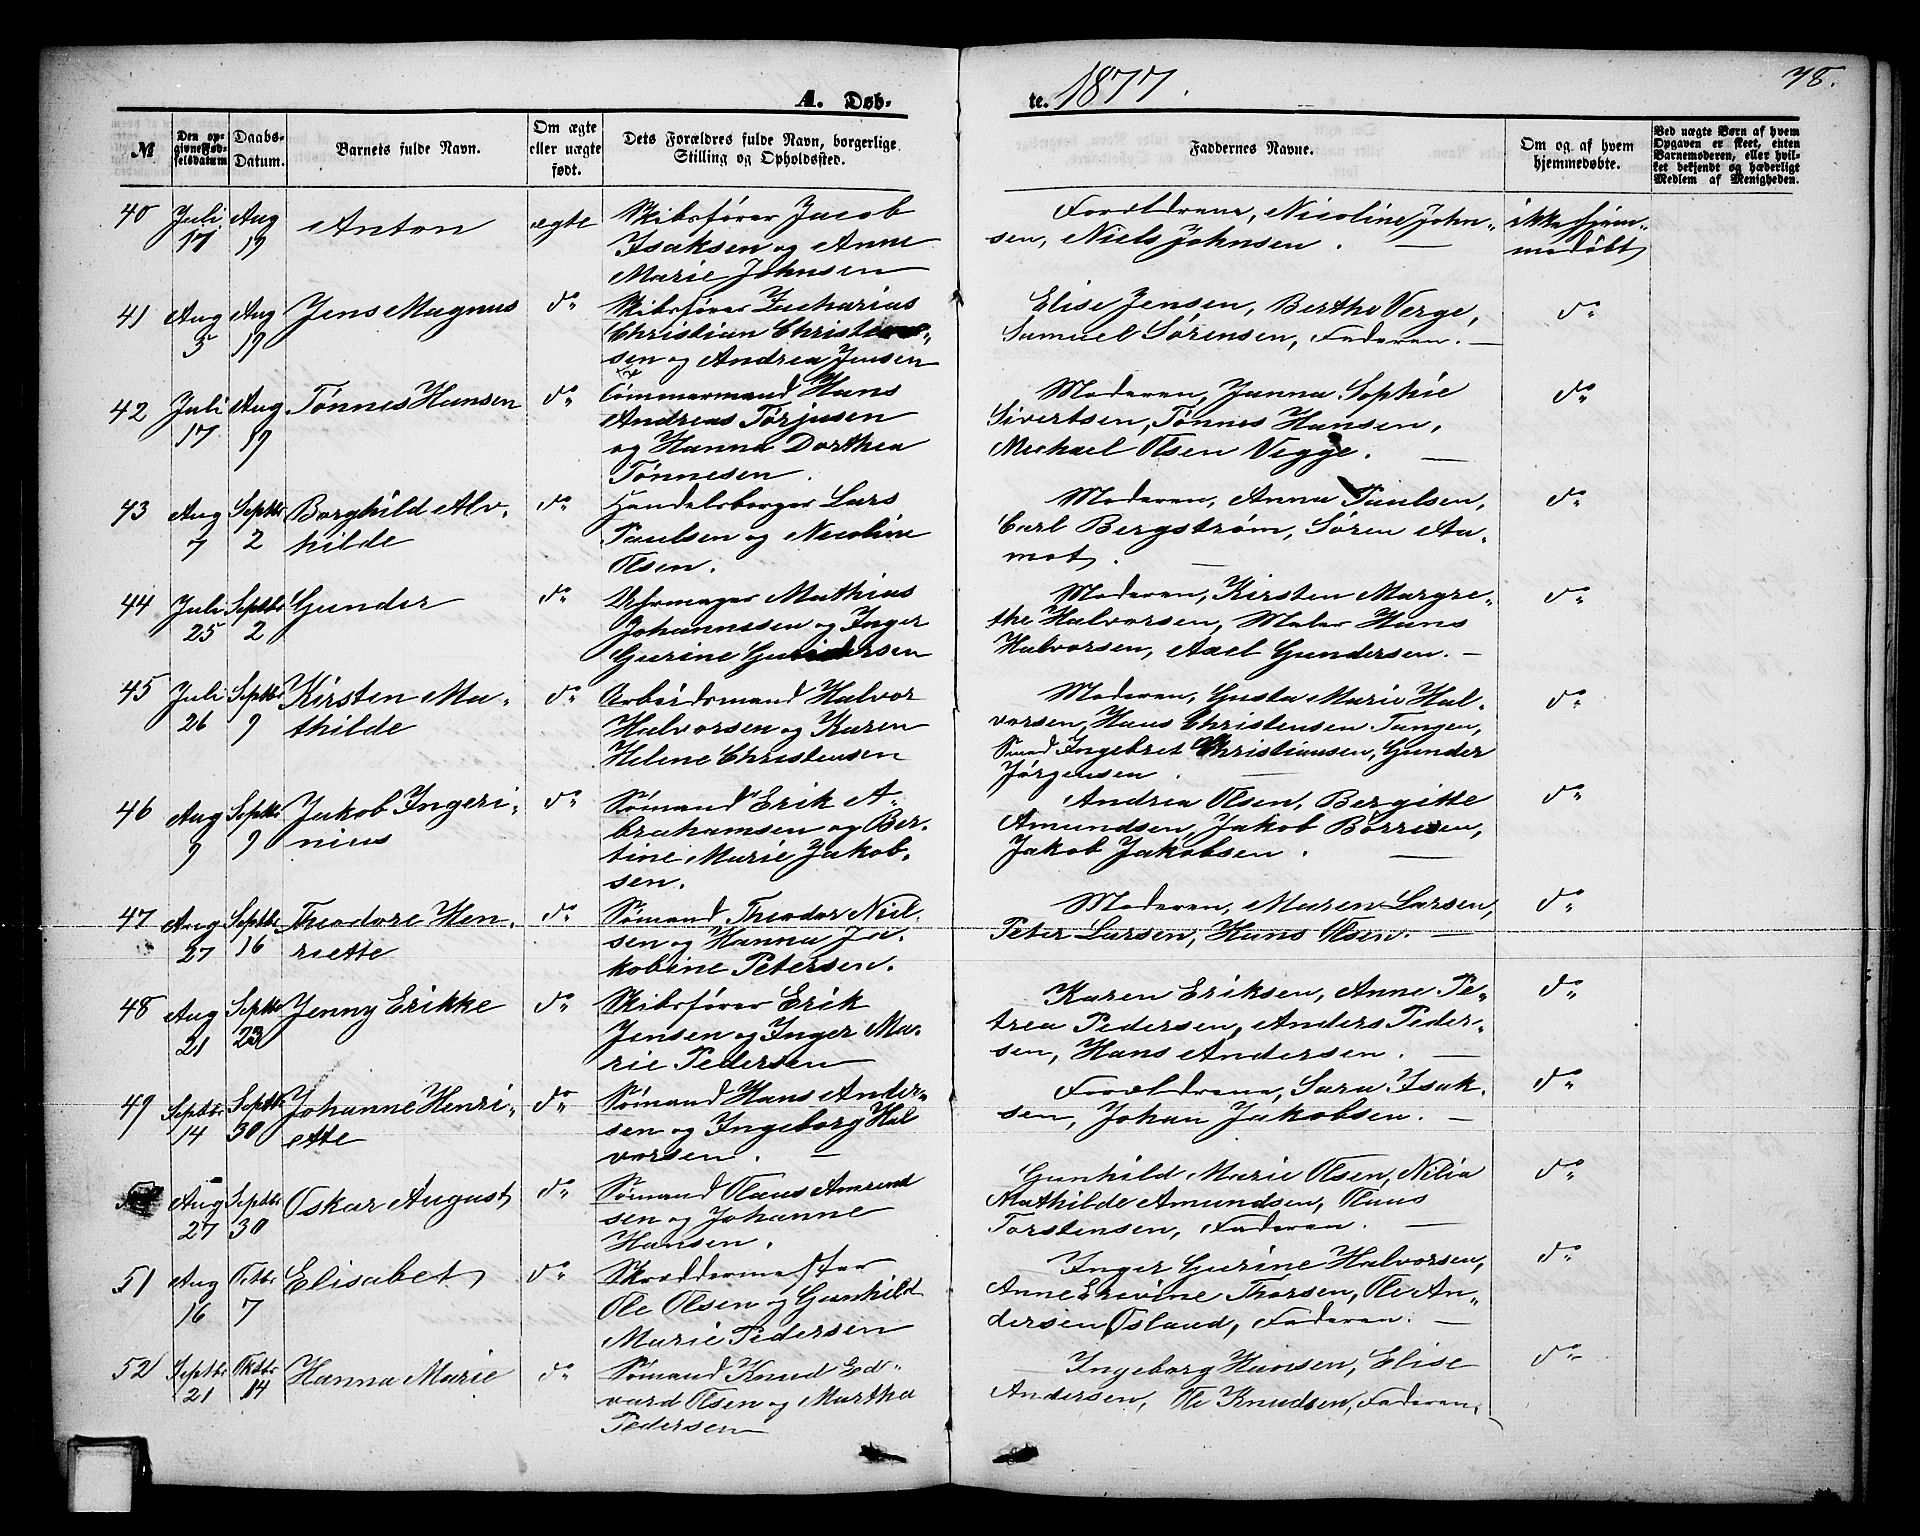 A. Døb-
te. 1877.
78.
№
Den op-
givne Fød-
selsdatum
Daabs-
Datum.
Barnets fulde Navn.
Om ægte
eller uægte
født.
Dets Forældres fulde Navn, borgerlige
Stilling og Opholdssted.
Faddernes Navne.
Om og af hvem
hjemmedøbte.
Ved uægte Børn af hvem
Opgaven er skeet, enten
Barnemoderen, eller hvil-
ket bekjendt og hæderligt
Medlem af Menigheden.
40 Juli 17 Aug 19 Anton ægte Skibsfører Jacob
Isaksen og Anne
Marie Johnsen
Forældrene, Nicoline John-
sen, Niels Johnsen. —
ikke hjem-
medøbt
41 Aug 5 Aug 19 Jens Magnus do Skibsfører Zacharias
Christian Christen-
sen og Andrea Jensen
Elise Jensen, Berthe Verge,
Samuel Sørensen, Faderen. —
do
42 Juli 17 Aug 19 Tønnes Hansen do Tømmermand Hans
Andreas Tørjusen
og Hanna Dorthea
Tønnesen.
Moderen, Janna Sophie
Sivertsen, Tønnes Hansen,
Michael Olsen Vegge. —
do
43 Aug 7 Septbr 2 Borghild Alv-
hilde
do Handelsborger Lars
Paulsen og Nicoline
Olsen.
Moderen, Anna Paulsen,
Carl Bergstrøm, Søren Aa-
mot. —
do
44 Juli 25 Septbr 2 Gunder do Uhrmager Mathias
Johannesen og Inger
Gurine Gundersen
Moderen, Kirsten Margre-
the Halvorsen, Maler Hans
Halvorsen, Axel Gundersen. —
do
45 Juli 26 Septbr 9 Kirsten Ma-
thilde
do Arbeidsmand Halvor
Halvorsen og Karen
Helene Christensen
Moderen, Gusta Marie Hal-
vorsen, Hans Christensen Tangen,
Smed Ingebret Christiansen, Gunder
Jørgensen. —
do
46 Aug 9 Septbr 9 Jakob Ingeri-
nius
do Sømand Erik A-
brahamsen og Ber-
tine Marie Jakob-
sen.
Andrea Olsen, Bergitte
Amundsen, Jakob Børresen,
Jakob Jakobsen. —
do
47 Aug 27 Septbr 16 Theodore Hen-
riette
do Sømand Theodor Niel-
sen og Hanna Ja-
kobine Petersen.
Moderen, Maren Larsen,
Peter Larsen, Hans Olsen. —
do
48 Aug 21 Septbr 23 Jenny Erikke do Skibsfører Erik
Jensen og Inger Ma-
rie Pedersen
Karen Eriksen, Anne Pe-
trea Pedersen, Anders Peder-
sen, Hans Andersen. —
do
49 Septbr 14 Septbr 30 Johanne Henri-
ette
do Sømand Hans Ander-
sen og Ingeborg Hal
vorsen. —
Forældrene, Sara Isak-
sen, Johan Jakobsen. —
do
Aug 27 Septbr 30 Oskar August do Sømand Olaus Amund
sen og Johanne
Hansen.
Gunhild Marie Olsen, Nilia
Mathilde Amundsen, Olaus
Torstensen, Faderen. —
do
51 Aug 16 Octbr 7 Elisabet do Skræddermester
Ole Olsen og Gunhild
Marie Pedersen
Inger Gurine Halvorsen,
Anne Thorsen, Ole An-
dersen Osland, Faderen. —
do
52 Septbr 21 Oktbr 14 Hanna Marie do Sømand Knud Ed-
vard Olsen og Martha
Pedersen
Ingeborg Hansen, Elise
Andersen, Ole Knudsen, Faderen.
do